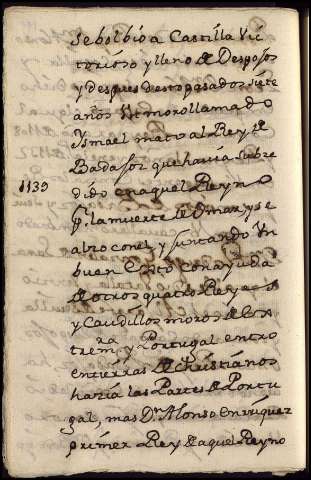 Se bolbio a Castilla Vic
torioso y lleno de Despojos
y despues desto pasados siete
años Un moro llamado
Ysmael mato al Rey de
Badajoz que havia subce
1139
dido en aquel Reyno
p.r la muerte de Omar y se
alzo con el y juntando Un
buen Exto con ayuda
de otros quatro Reyes
y Caudillos moros de Ex
trem.ra y Portugal entro
en tierras de Christianos
hacia las Partes de Portu
gal, mas Dn Alonso enrriquez
primer Rey de aquel Reyno